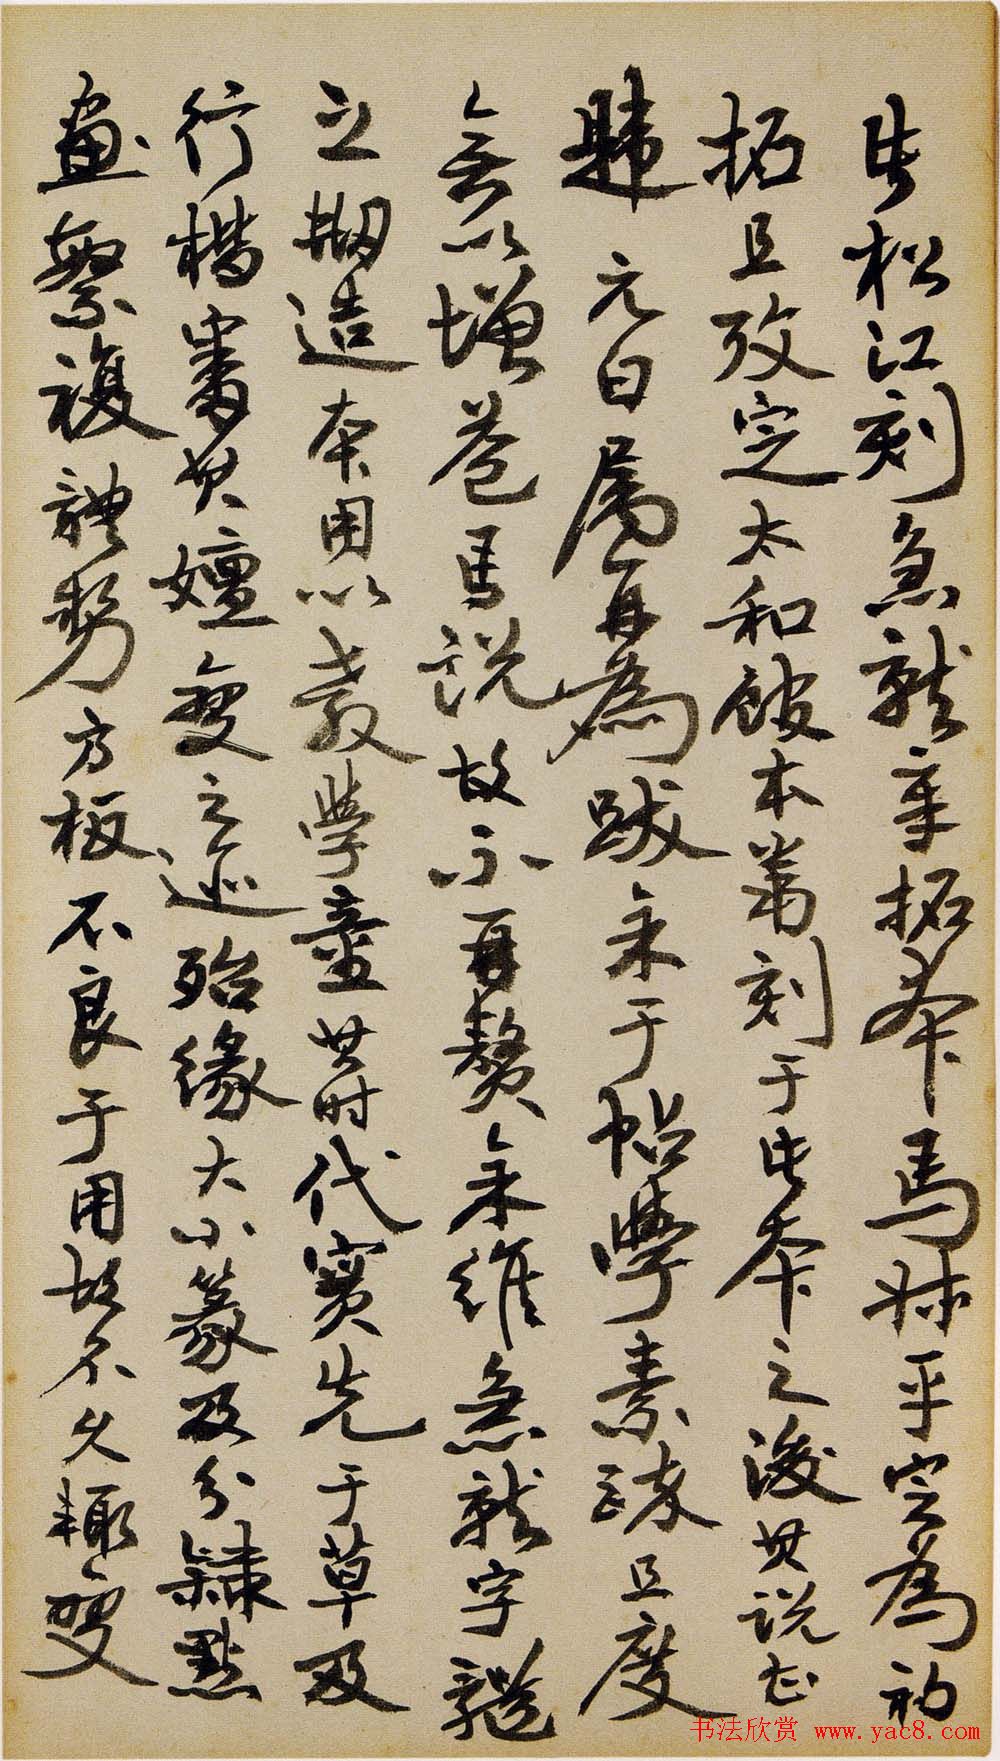 此松江刻急就章拓本馬叔平定為初
拓且攷定太和館本為刻于此本之後其說甚
韙元白屬再為跋余于帖學素疎且度
無以增益馬說故不再贅余維急就字體
之刱造本用以教學童其時代實先于草及
行楷審其嬗變之迹殆緣大小篆及分隸點
畫繁複體勢方板不良于用故不久輒變
书法欣赏 www.yac8.com